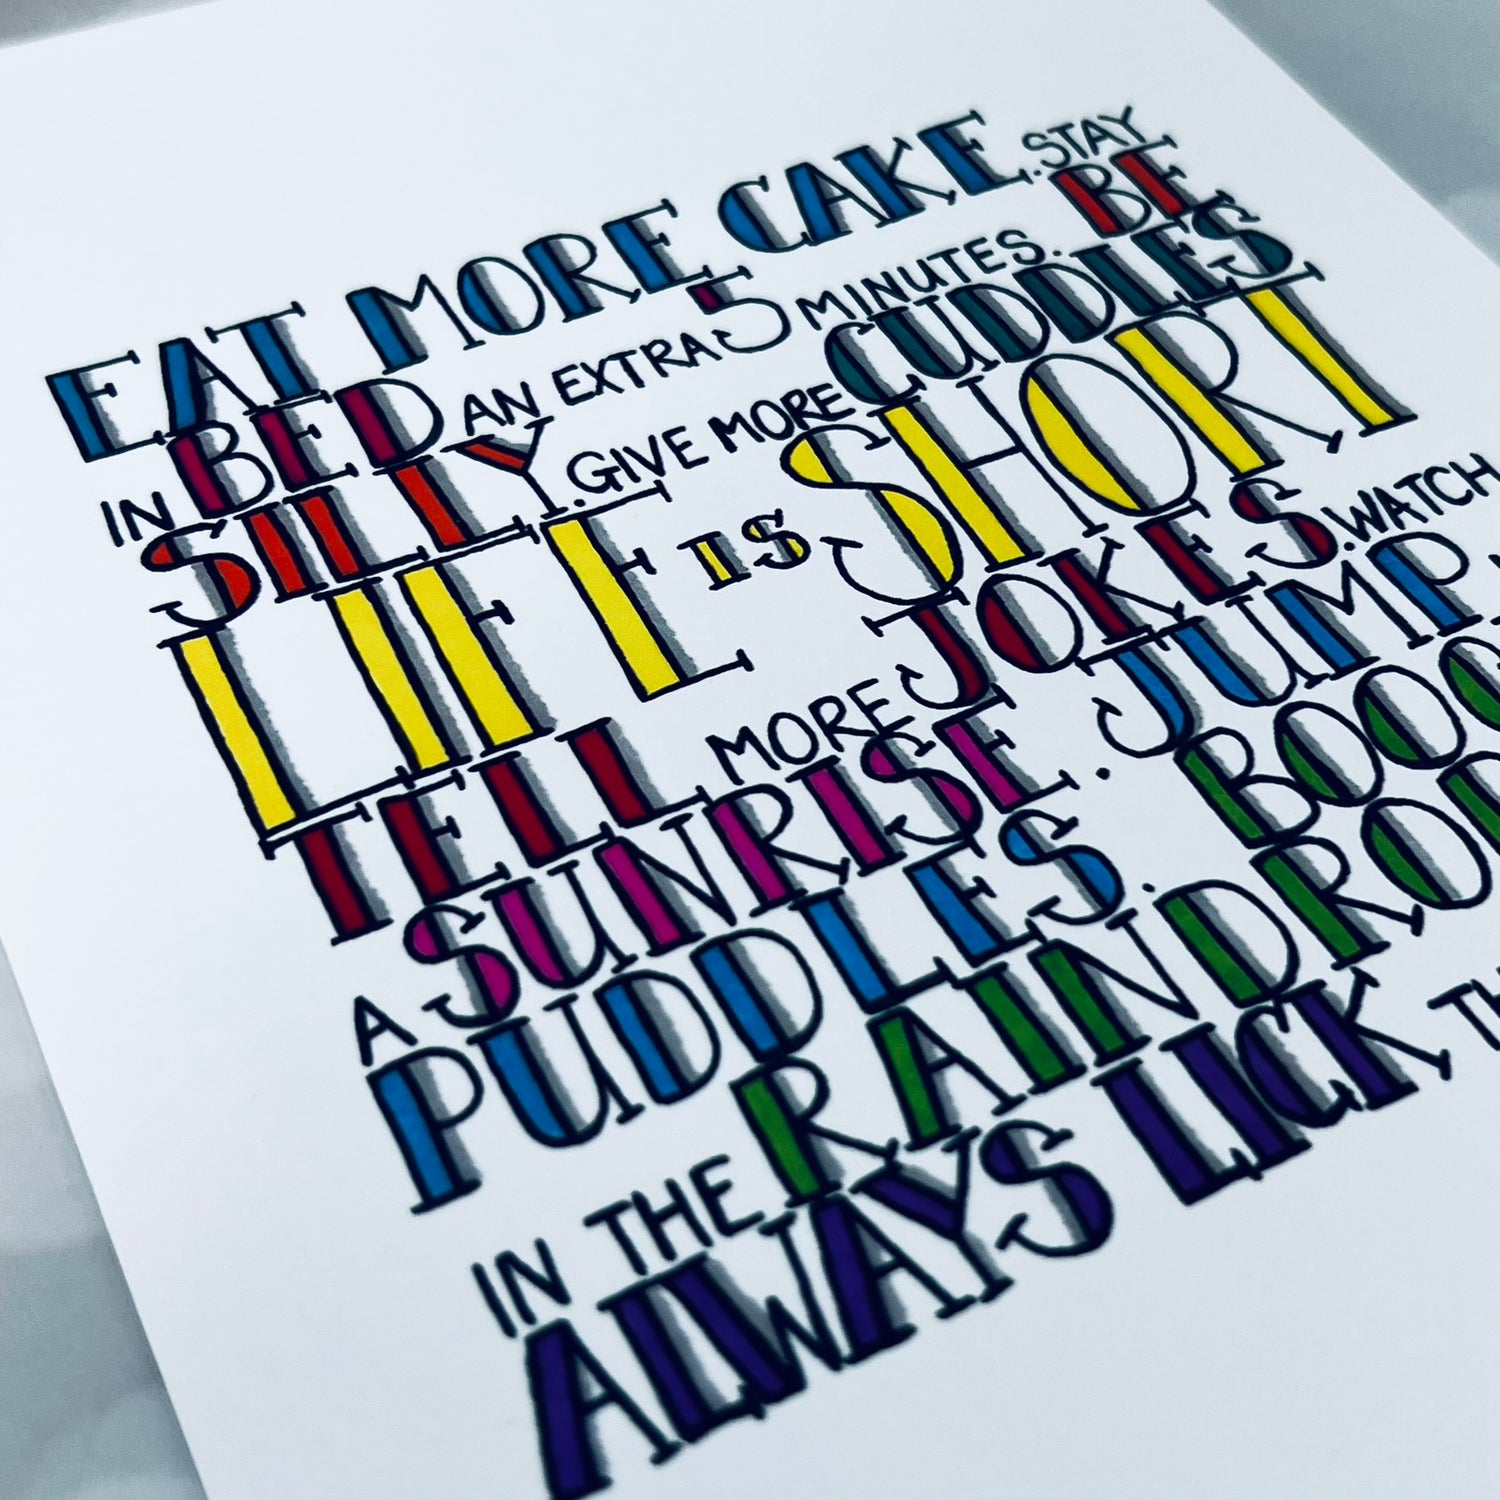 EAT MORE CAKE. STAY
IN BED AN EXTRA 5 MINUTES. BE
SILLY. GIVE MORE CUDDLES
LIFE IS SHORT
TELL MORE JOKES. WATCH
A SUNRISE. JUMP
PUDDLES.
IN THE RAINDRO
ALWAYS LICK